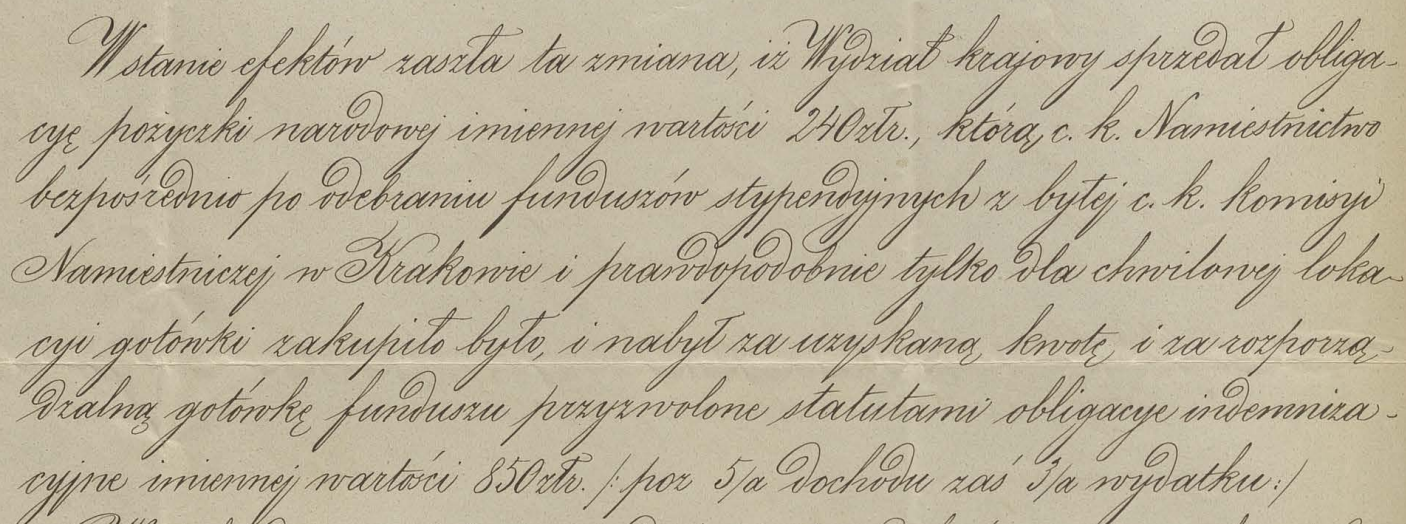 W stanie efektów zaszła ta zmiana, iż Wydział krajowy sprzedał obliga-
cyę pożyczki narodowej imiennej wartości 240 złr., którą c. k. Namiestnictwo
bezpośrednio po odebraniu funduszów stypendyjnych z byłej c. k. komisyi
Namiestniczej w Krakowie i prawdopodobnie tylko dla chwilowej loka-
cyi gotówki zakupiło było, i nabył za uzyskaną kwotę i za rozporzą-
dzalną gotówkę funduszu przyzwolone statutami obligacye indemniza-
cyjne imiennej wartości 850 złr. /: poz 5/a dochodu zaś 3/a wydatku :/